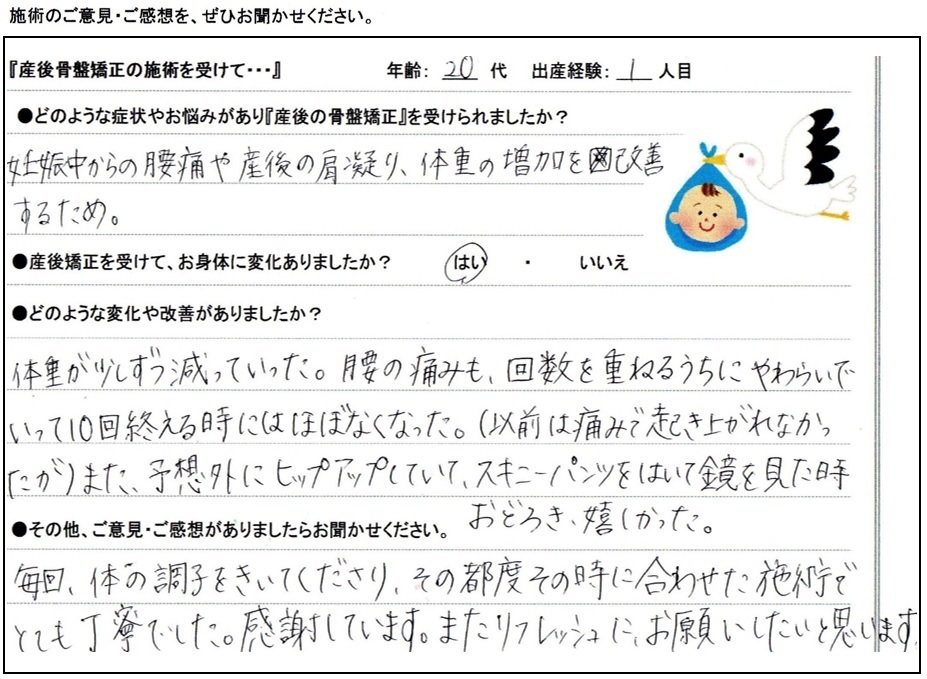 施術のご意見・ご感想を、ぜひお聞かせください。
『産後骨盤矯正の施術を受けて・・・』 年齢： 20 代 出産経験： 1 人目
●どのような症状やお悩みがあり『産後の骨盤矯正』を受けられましたか？
妊娠中からの腰痛や産後の肩凝り、体重の増加を改善
するため。
●産後矯正を受けて、お身体に変化ありましたか？ はい ・ いいえ
●どのような変化や改善がありましたか？
体重が少しずつ減っていった。腰の痛みも、回数を重ねるうちにやわらいで
いって10回終える時にはほぼなくなった。（以前は痛みで起き上がれなかっ
たが）また、予想外にヒップアップしていて、スキニーパンツをはいて鏡を見た時
おどろき、嬉しかった。
●その他、ご意見・ご感想がありましたらお聞かせください。
毎回、体の調子をきいてくださり、その都度その時に合わせた施術で
とても丁寧でした。感謝しています。またリフレッシュに、お願いしたいと思います。